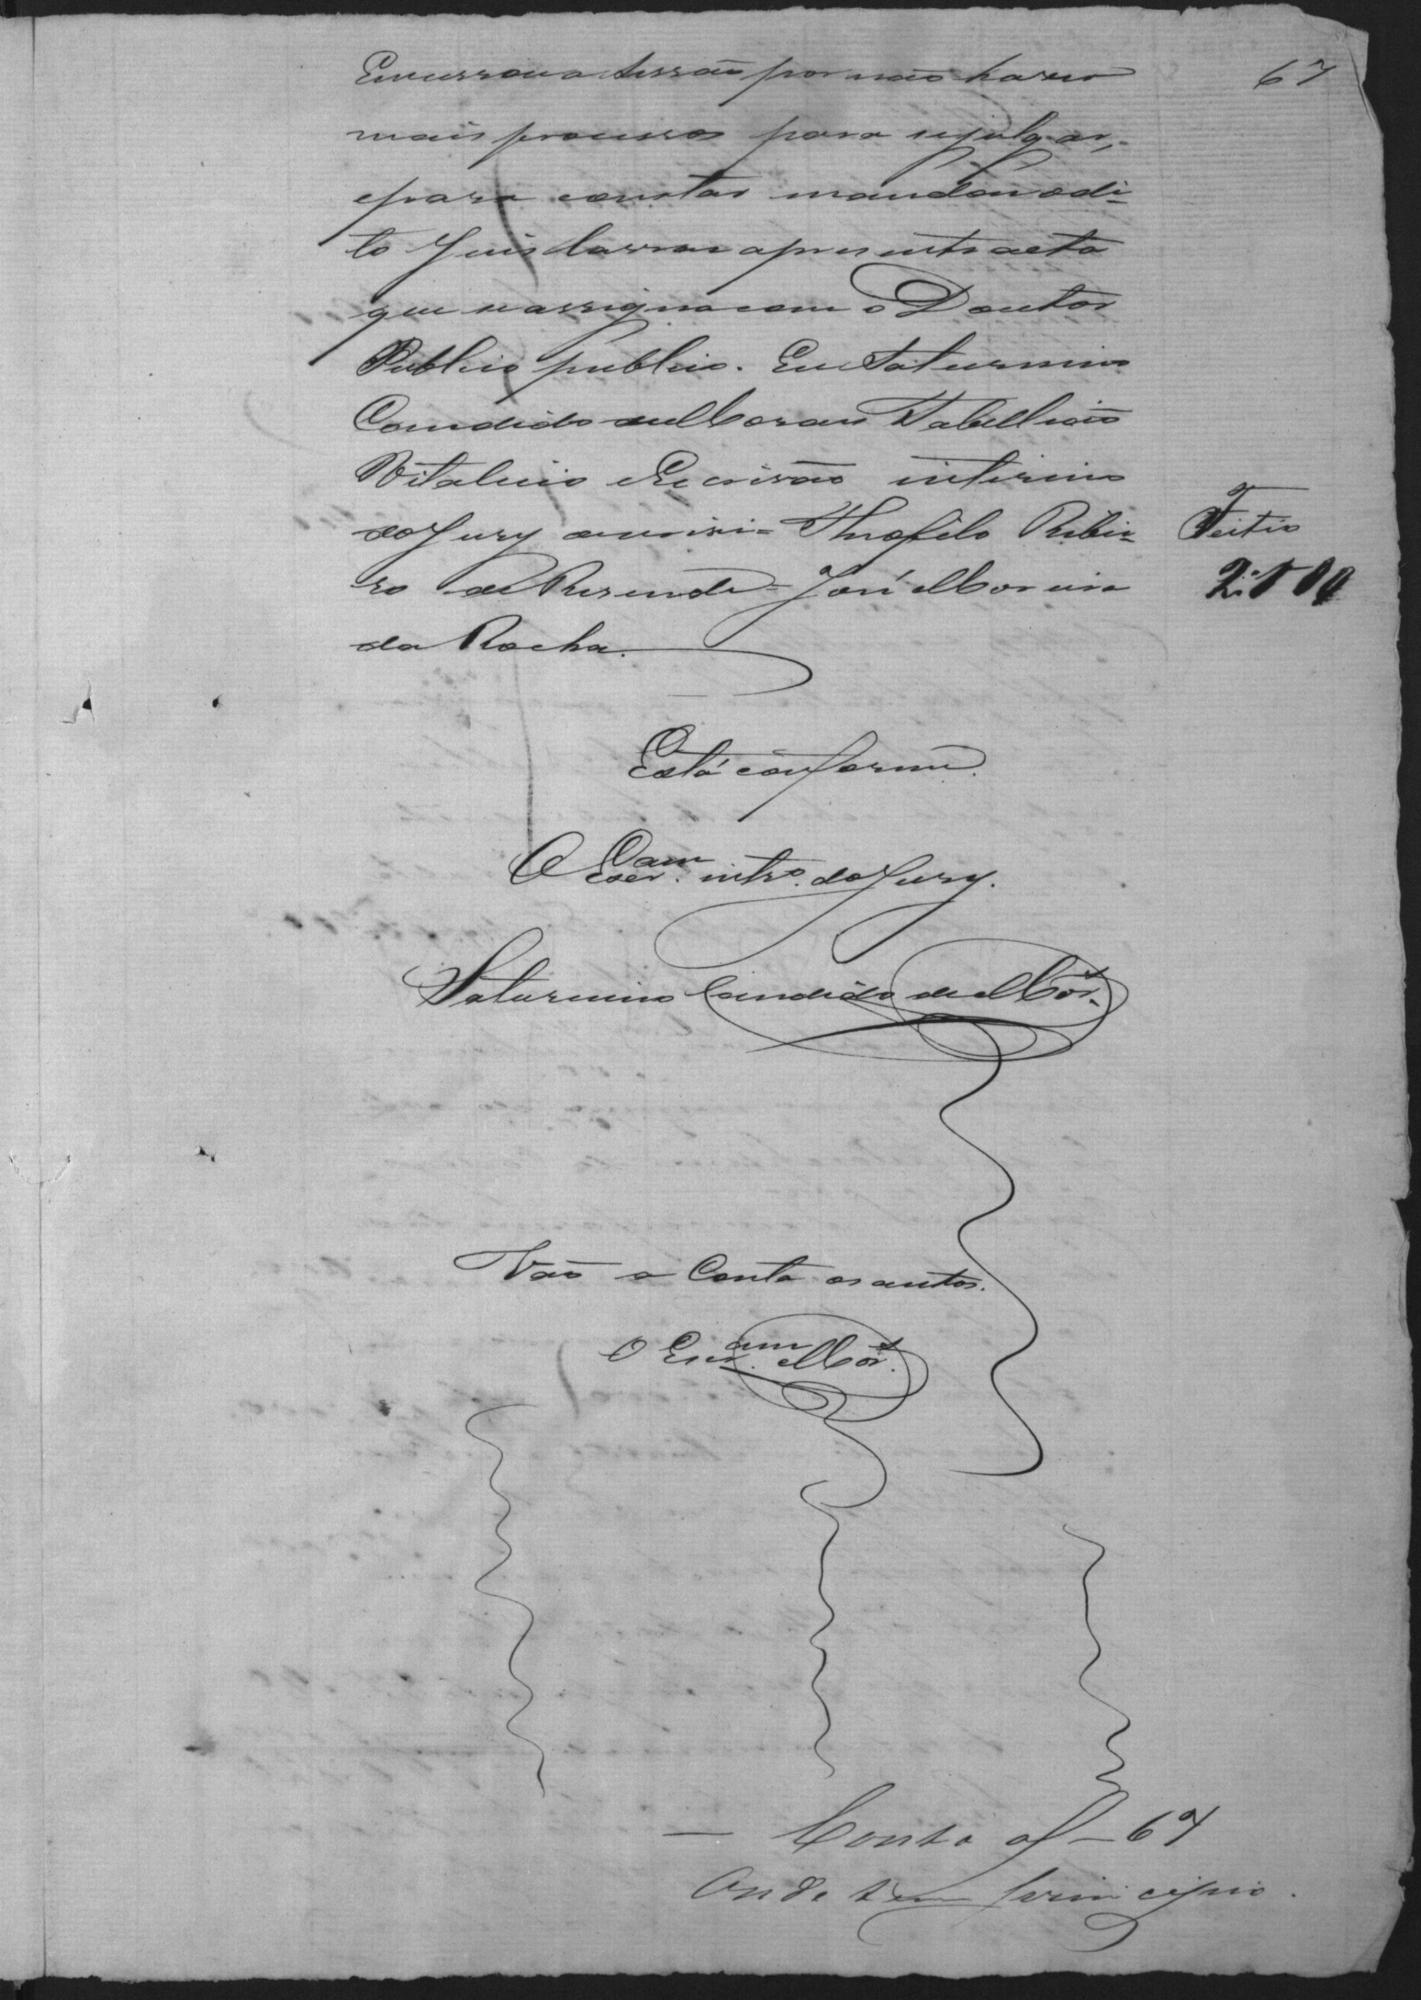 67
Encerrou a sessão por não haver
mais processos para se julgar,
e para constar mandou o di-
to Juis lavrar a presente acta
que se assigna com o Doutor
Publico publico. Eu Saturnino
Candido de Moraes Tabellião
Vitalicio e Escrivão interino
do Jury escrevi = Theofilo Ribei-
ro de Resende = José Moreira
da Rocha.
Feitio
Está conforme.
O Escr.am intr.o do Jury.
Saturnino Candido de Mor.s
Vão a Conta os autos.
O Escr.am Mor.s
— Conta a f — 67
Onde tem principio.